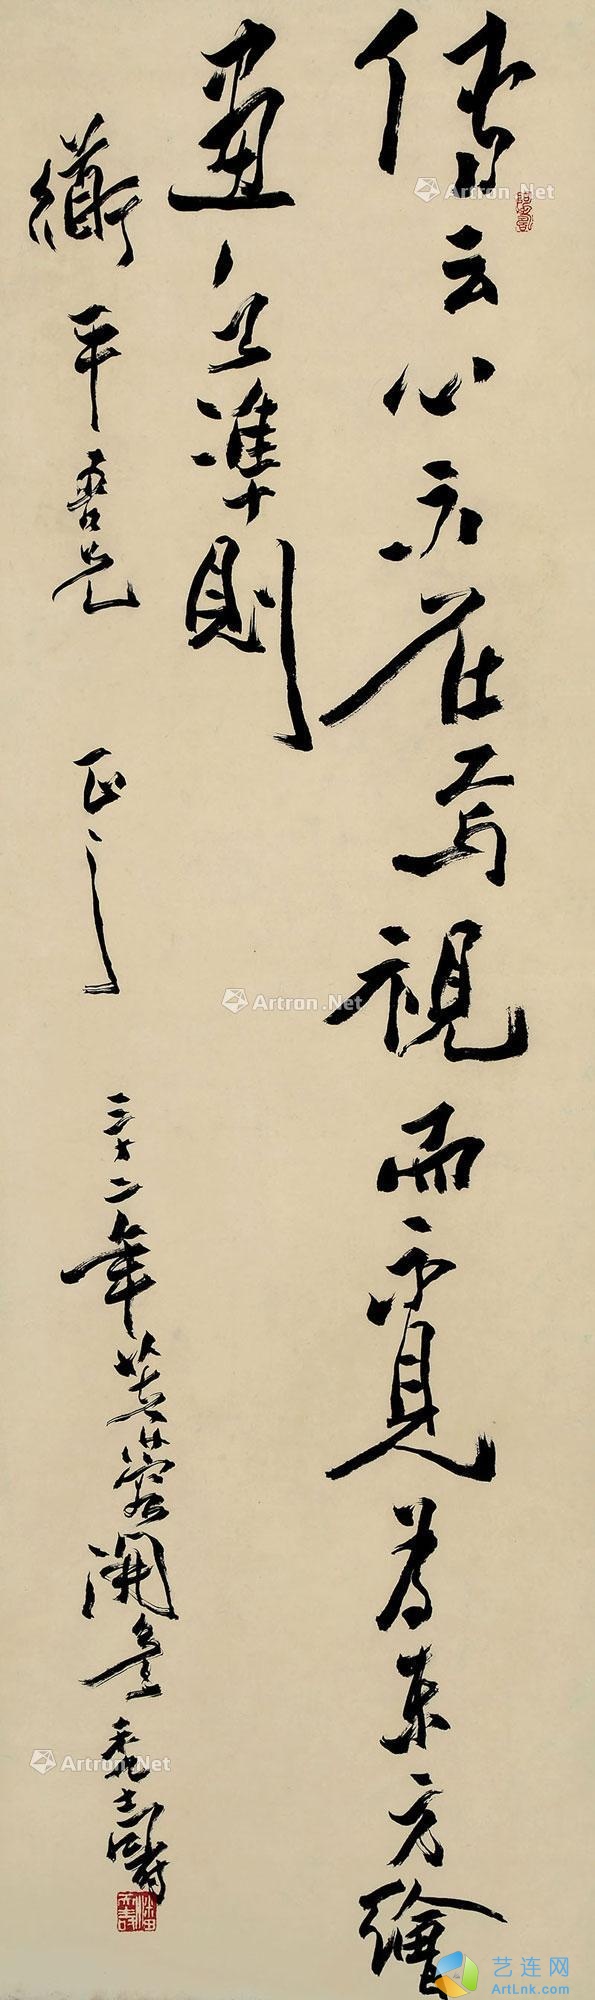 傳云心不在焉視而不見為東方繪
畫之準則
平吾兄 正之 三十二年芙蓉開 壽
Artron.Net
Artron.Net
Artron.Net
Artron.Net
艺连网
ArtLnk.com